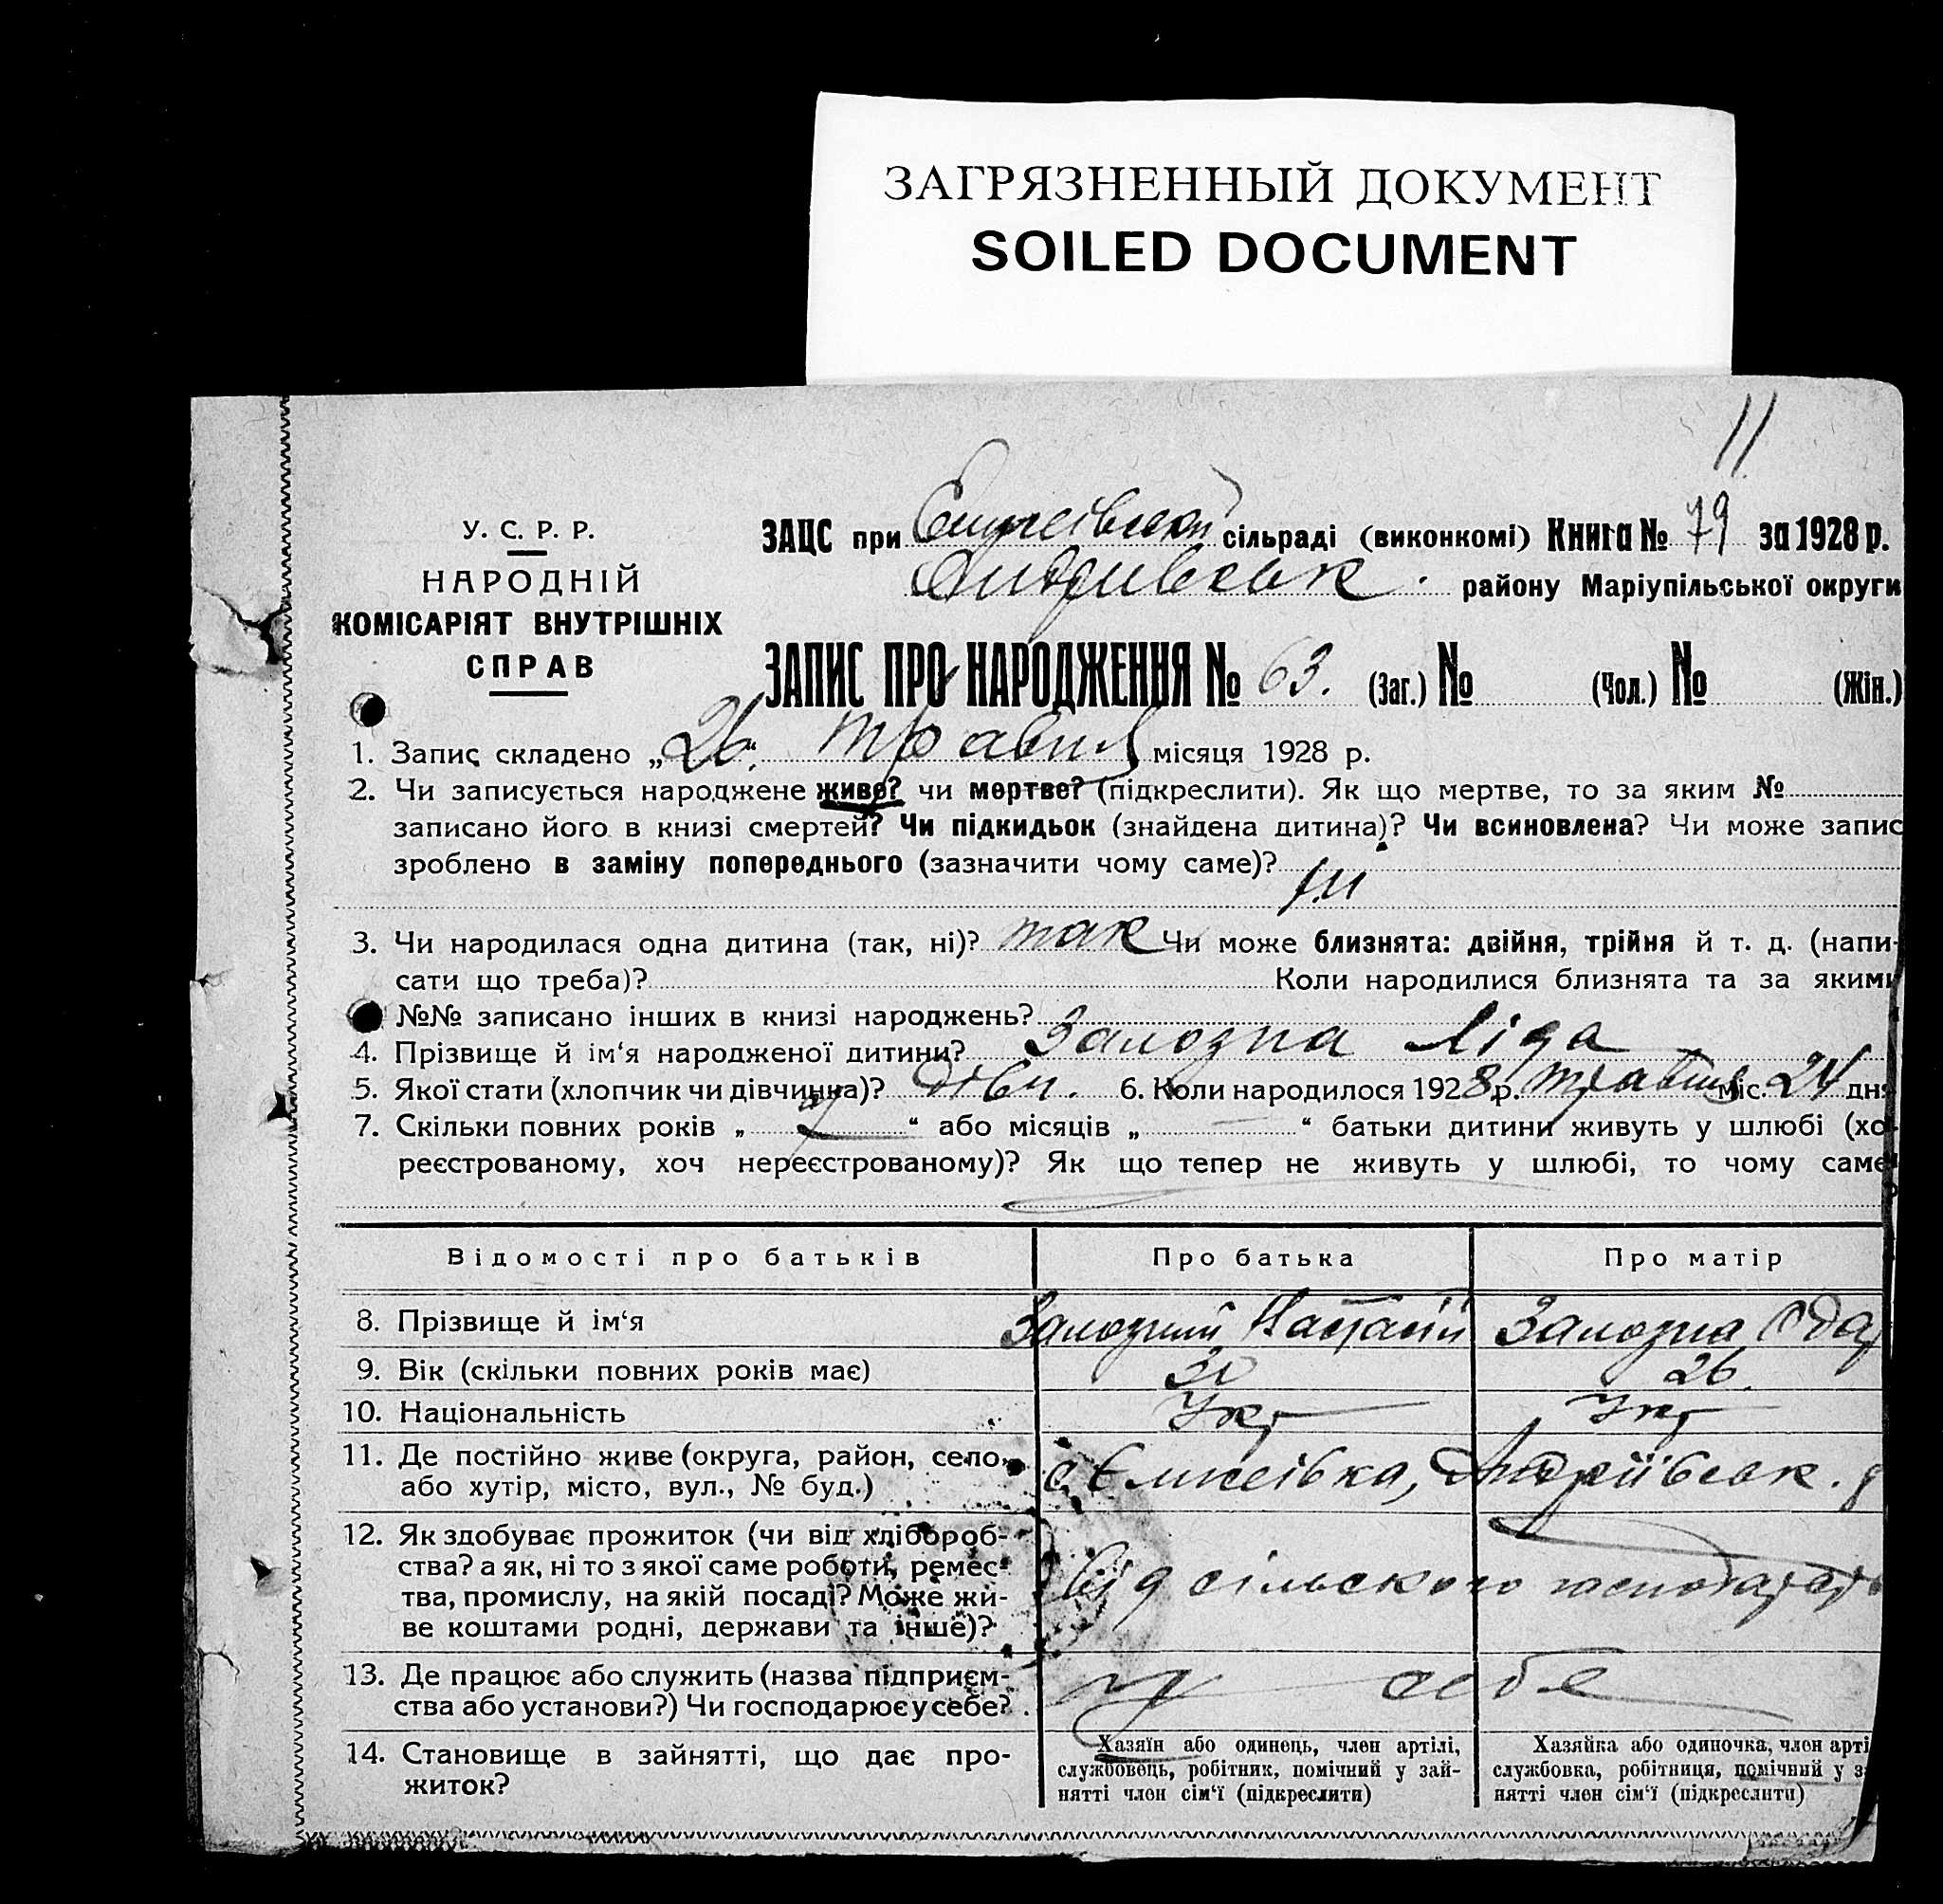 ЗАГРЯЗНЕННЫЙ ДОКУМЕНТ
SOILED DOCUMENT
11
У. С. Р. Р.
НАРОДНІЙ
КОМІСАРІЯТ ВНУТРІШНІХ
СПРАВ
ЗАЦС при сільраді (виконкомі) Книга № 79 за 1928 р.
району Маріупільської округи
ЗАПИС ПРО НАРОДЖЕННЯ № 63. (Заг.) № (Чол.) № (Жін.)
1. Запис складено „26“ травня місяця 1928 р.
2. Чи записується народжене живе? чи мертве? (підкреслити). Як що мертве, то за яким №
записано його в книзі смертей? Чи підкидьок (знайдена дитина)? Чи всиновлена? Чи може запис
зроблено в заміну попереднього (зазначити чому саме)?
ні
3. Чи народилася одна дитина (так, ні)? так Чи може близнята: двійня, трійня й т. д. (напи-
сати що треба)? Коли народилися близнята та за якими
№№ записано інших в книзі народжень?
4. Прізвище й ім‘я народженої дитини? Залозна Ліда
5. Якої стати (хлопчик чи дівчинка)? дівч. 6. Коли народилося 1928 р. травня міс. 24 дня
7. Скільки повних років „ “ або місяців „ “ батьки дитини живуть у шлюбі (хо
реєстрованому, хоч нереєстрованому)? Як що тепер не живуть у шлюбі, то чому саме
Відомості про батьків Про батька Про матір
8. Прізвище й ім‘я Залозний Залозна Ода
9. Вік (скільки повних років має) 30 26.
10. Національність Укр Укр
11. Де постійно живе (округа, район, село,
або хутір, місто, вул., № буд.) с. Андріївськ. р
12. Як здобуває прожиток (чи від хлібороб-
ства? а як, ні то з якої саме роботи, ремес-
тва, промислу, на якій посаді? Може жи-
ве коштами родні, держави та інше)?
від сільского
13. Де працює або служить (назва підприєм-
ства або установи?) Чи господарює у себе?
у себе
14. Становище в зайнятті, що дає про-
житок?
Хазяїн або одинець, член артілі,
службовець, робітник, помічний у зай-
нятті член сім‘ї (підкреслити)
Хазяйка або одиночка, член арті
службовка, робітниця, помічний у з
нятті член сім‘ї (підкреслити)